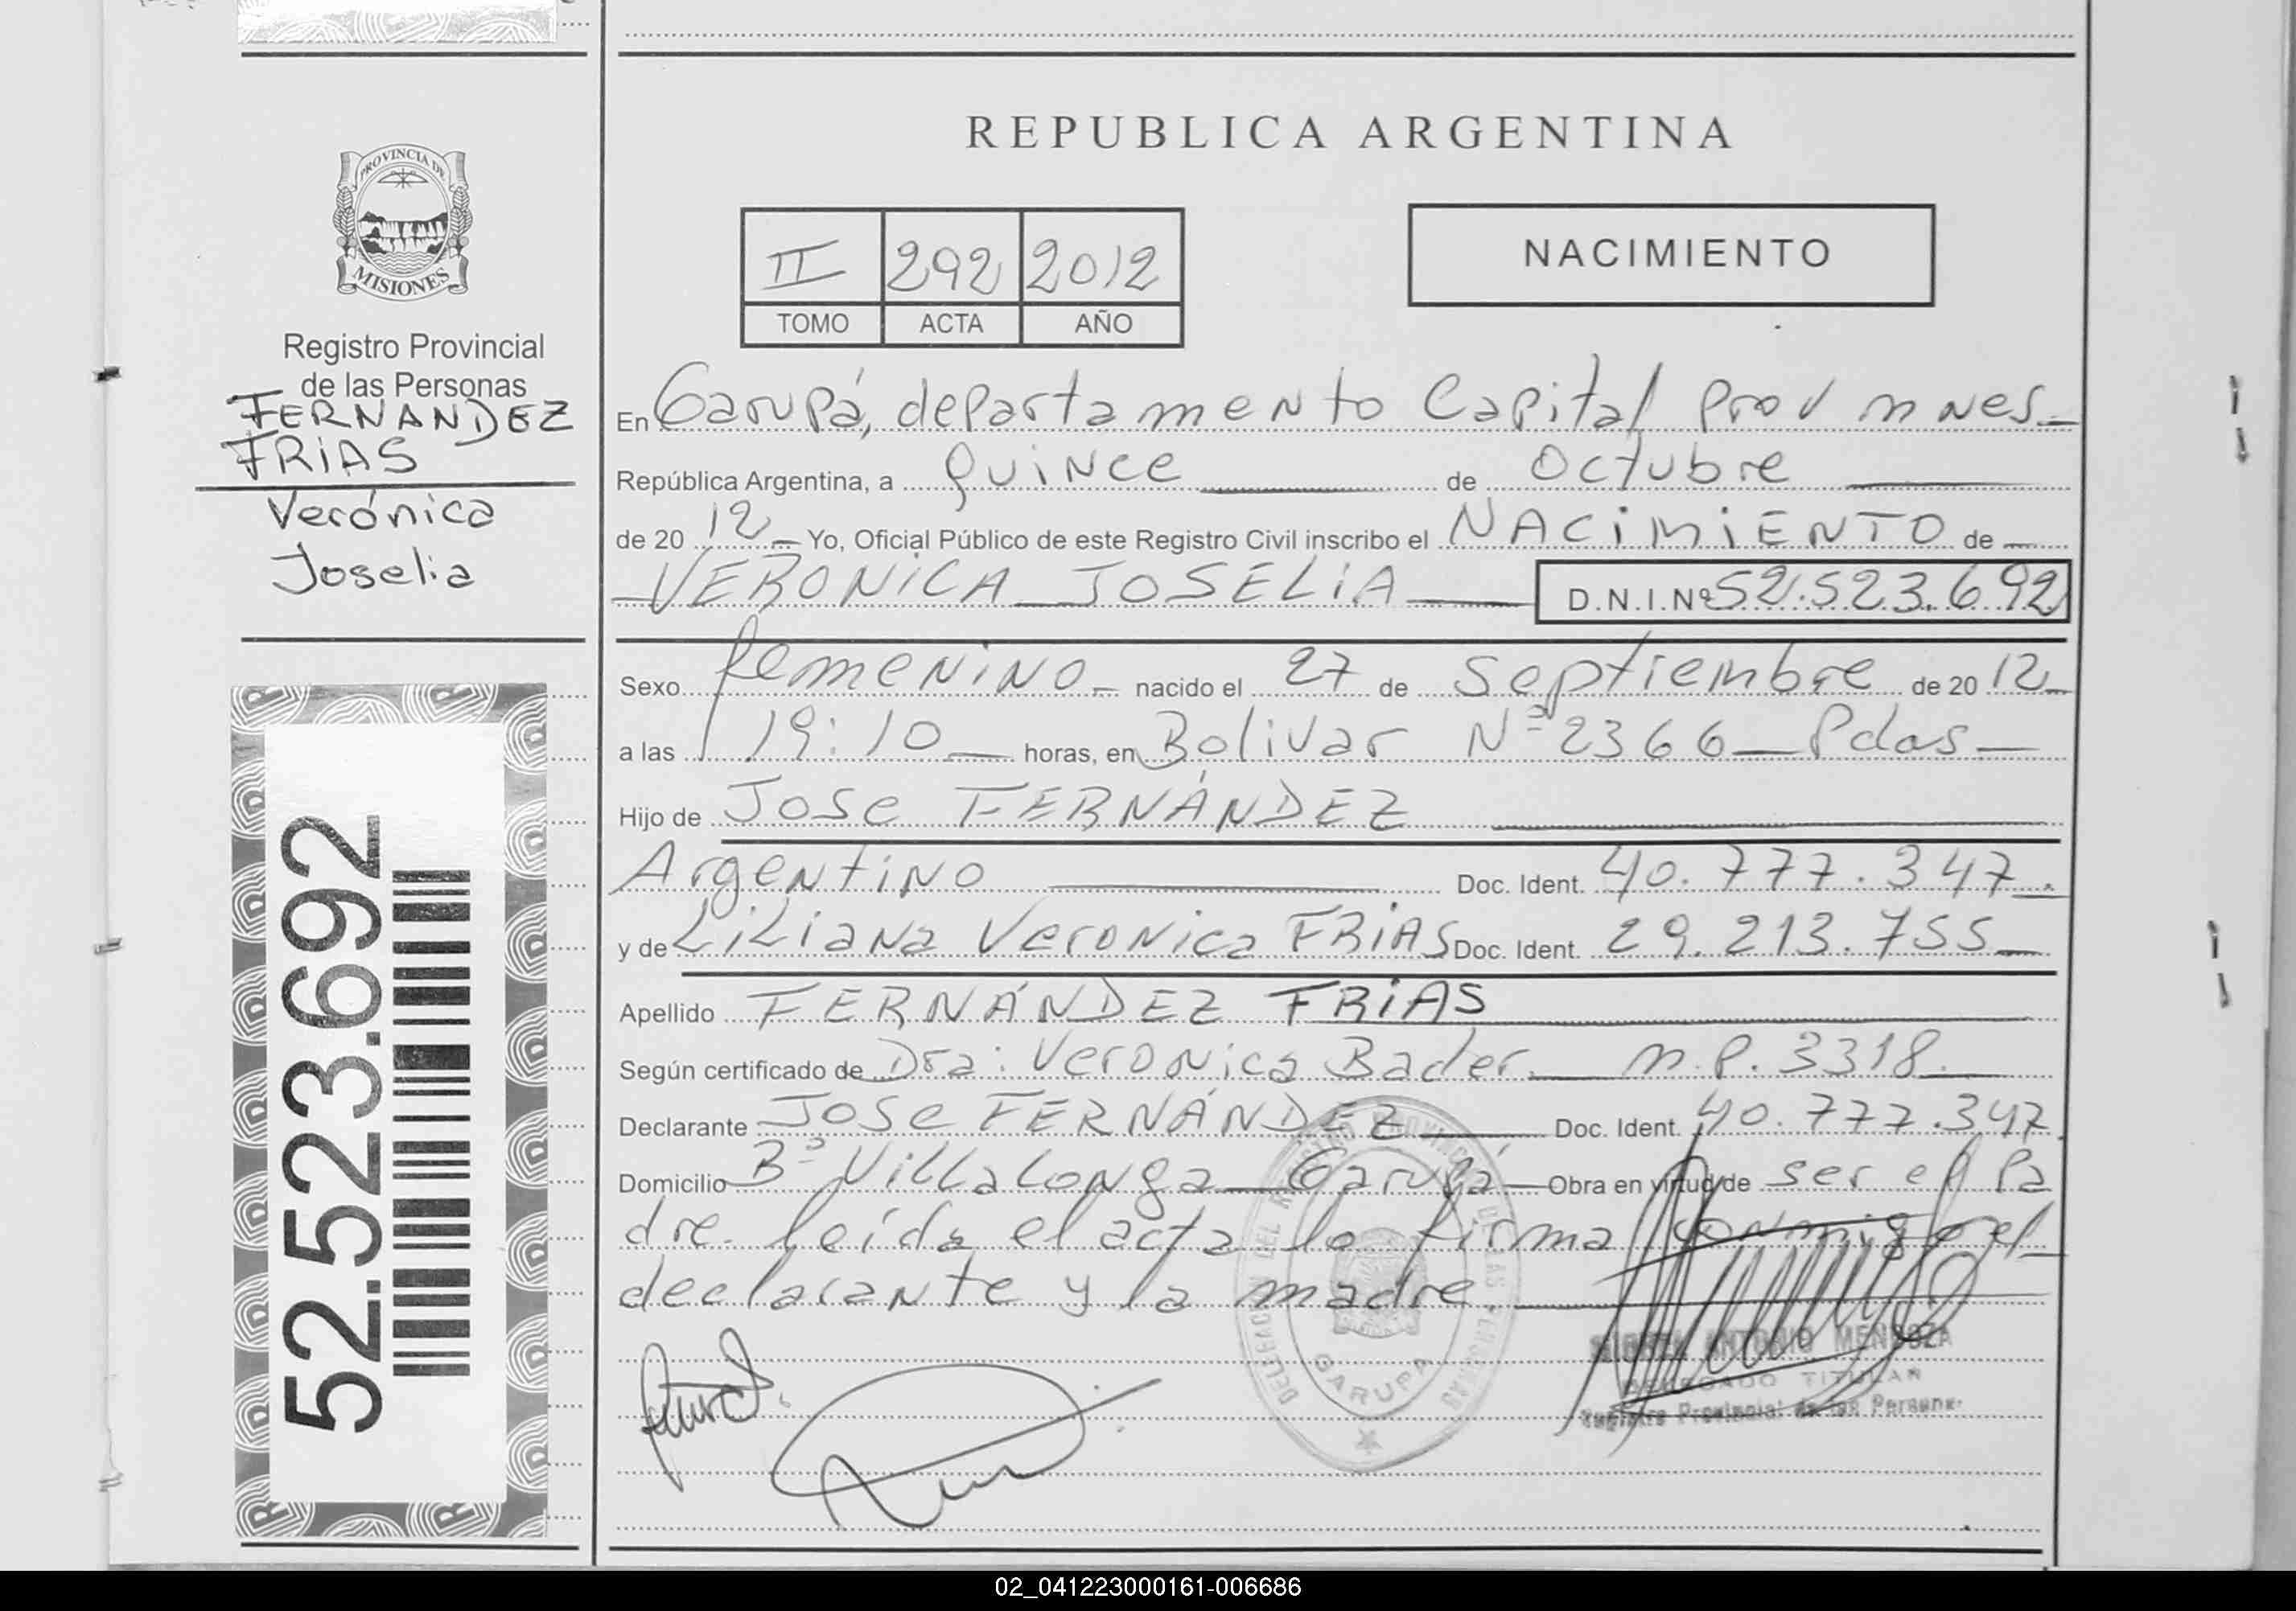 PROVINCIA DE
MISIONES
Registro Provincial
de las Personas
FERNANDEZ
FRIAS
Verónica
Joselia
52.523.692
REPUBLICA ARGENTINA
II 292 2012
TOMO ACTA AÑO
NACIMIENTO
En Garupá, departamento Capital prov mnes.
República Argentina, a quince de Octubre
de 20 12 Yo, Oficial Público de este Registro Civil inscribo el NACIMIENTO de
VERONICA JOSELIA D.N.I.Nº 52.523.692
Sexo femenino nacido el 27 de septiembre de 20 12
a las 19:10 horas, en Bolivar Nº 2366 Pdas
Hijo de Jose FERNÁNDEZ
Argentino Doc. Ident. 40.777.347.
y de Liliana Veronica FRIAS Doc. Ident. 29.213.755
Apellido FERNÁNDEZ FRIAS
Según certificado de Dra: Veronica Bader. m.p. 3318.
Declarante Jose FERNÁNDEZ Doc. Ident. 40.777.347
Domicilio Bº Villalonga Garupá Obra en virtud de ser el pa
dre. leída el acta la firma conmigo el
declarante y la madre
GARUPA
ANTONIO MENDOZA
DELEGADO TITULAR
Registro Provincial de las Personas
02_041223000161-006686